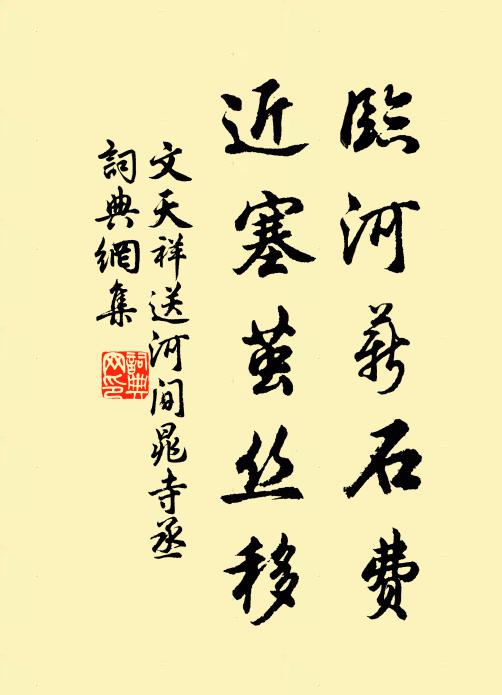 臨河薪石費
近塞茧丝移
文天祥送河间晁寺丞
詞典網集
詞典
网印